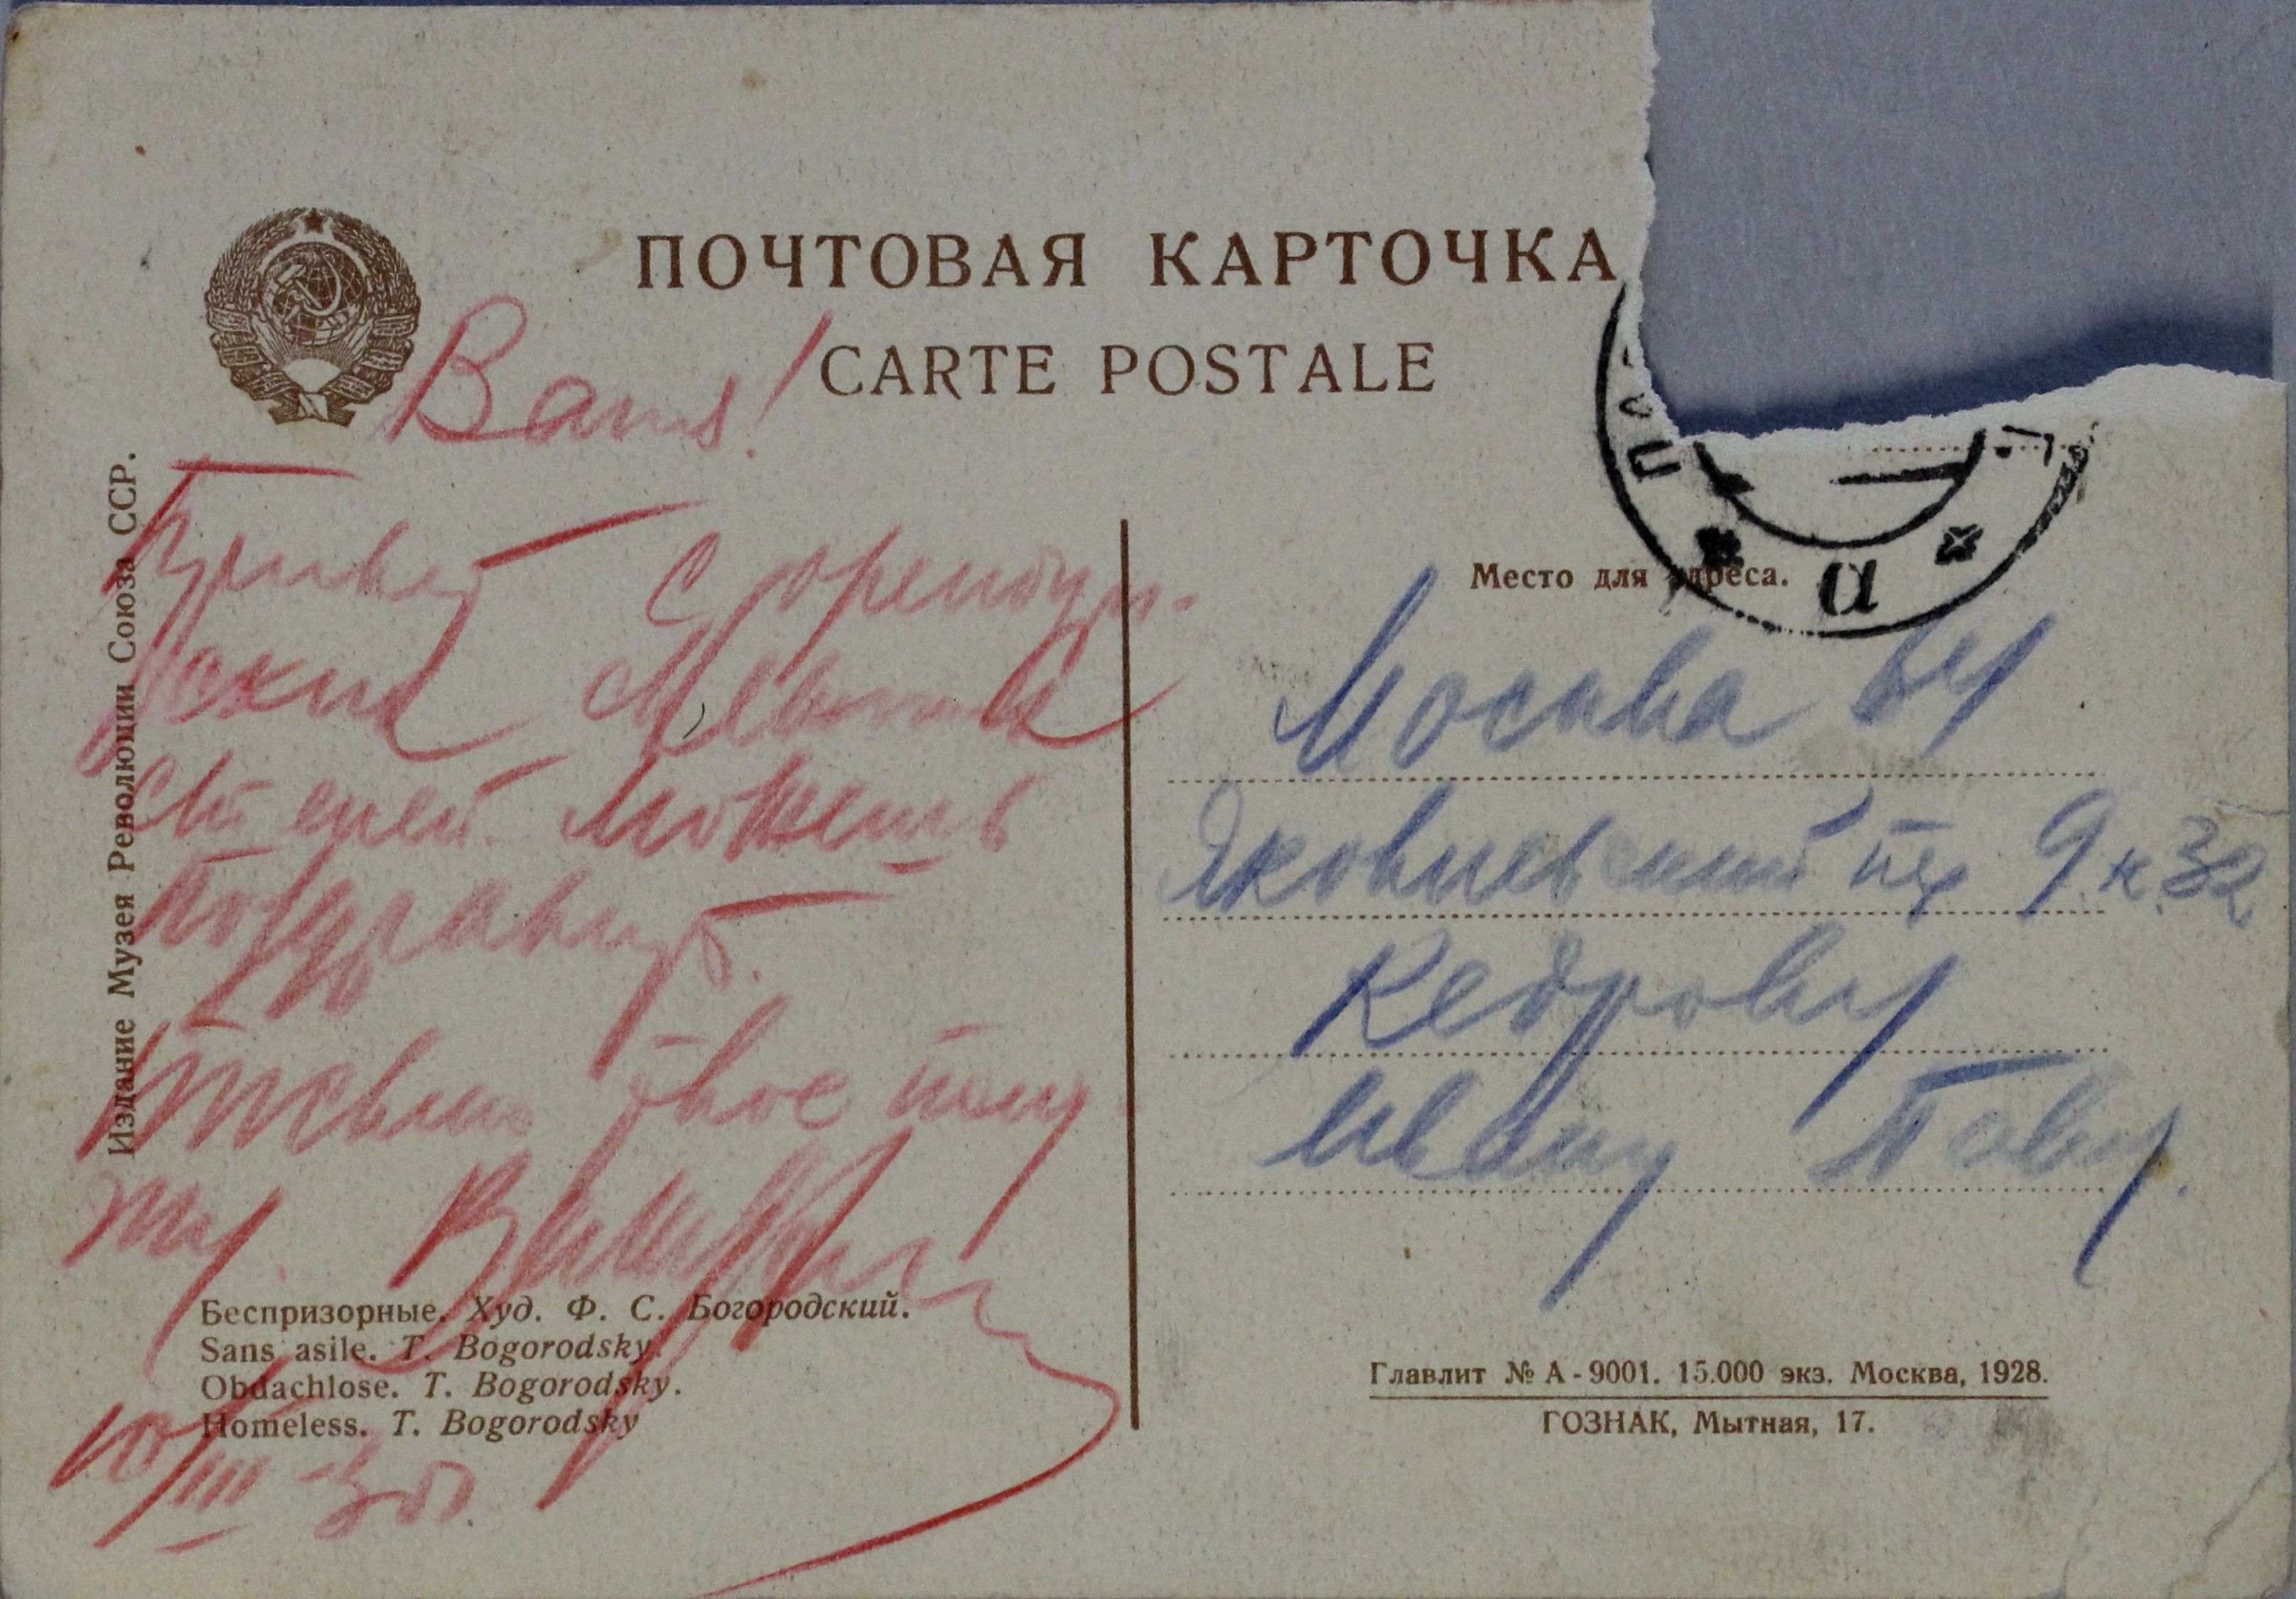 ПОЧТОВАЯ КАРТОЧКА
CARTE POSTALE
Ваня!
Привет с оренбур-
ских
степей. Можешь
поздравить
твое
10/III-30г.
Издание Музея Революции Союза ССР.
Беспризорные. Худ. Ф. С. Богородский.
Sans asile. T. Bogorodsky.
Obdachlose. T. Bogorodsky.
Homeless. T. Bogorodsky
Место для адреса.
а
Москва
Яковлевский пер 9 к 32
Кедрову
Ивану Павл.
Главлит № А-9001. 15.000 экз. Москва, 1928.
ГОЗНАК, Мытная, 17.